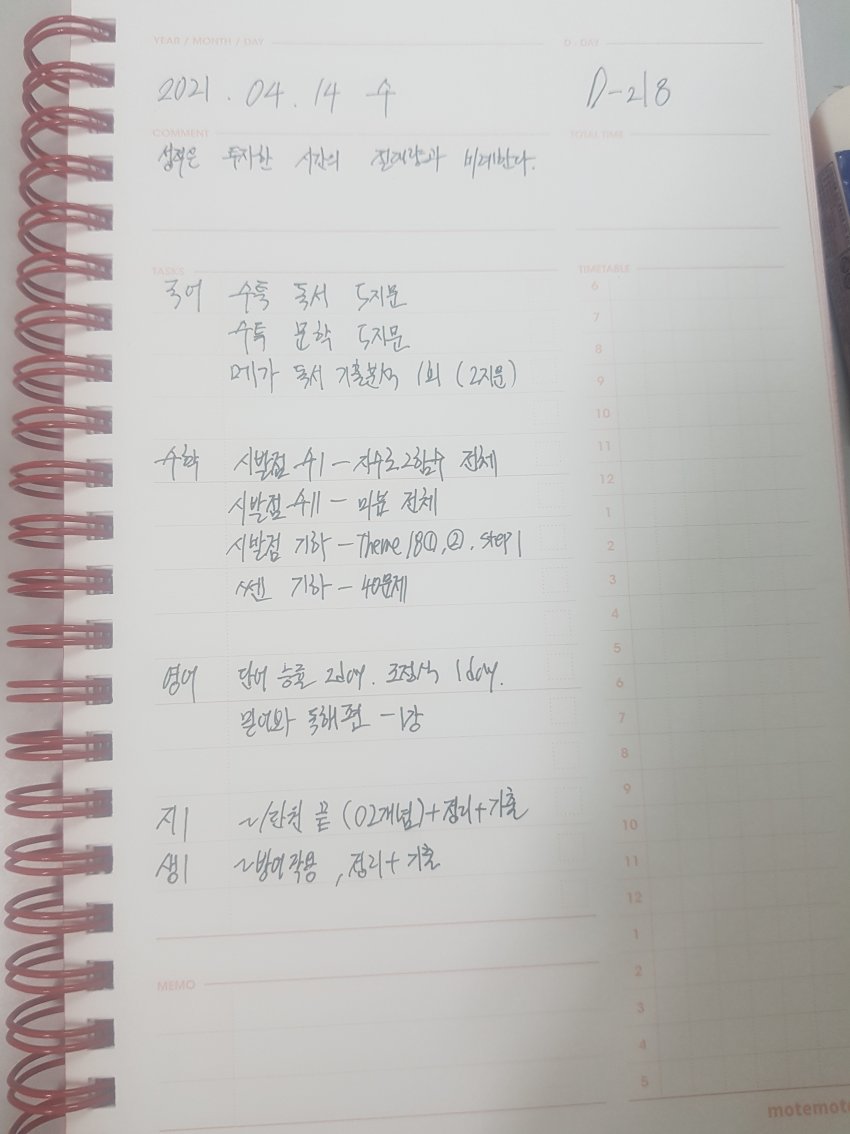 YEAR / MONTH / DAY
D - DAY
2021 . 04 . 14 수
D-218
COMMENT
TOTAL TIME
성적은 투자한 시간의 절대량과 비례한다.
TASKS
TIMETABLE
국어 수특 독서 5지문
수특 문학 5지문
메가 독서 기출분석 1회 (2지문)
수학 시발점 수I - 지수로그함수 전체
시발점 수II - 미분 전체
시발점 기하 - Theme 18①,②. step 1
쎈 기하 - 40문제
영어 단어 수특 2day. 조정식 1day.
믿어봐 독해편 - 1강
지I ~ 끝 (02개념)+정리+기출
생I ~방어작용, 정리+기출
MEMO
6
7
8
9
10
11
12
1
2
3
4
5
6
7
8
9
10
11
12
1
2
3
4
5
motemot